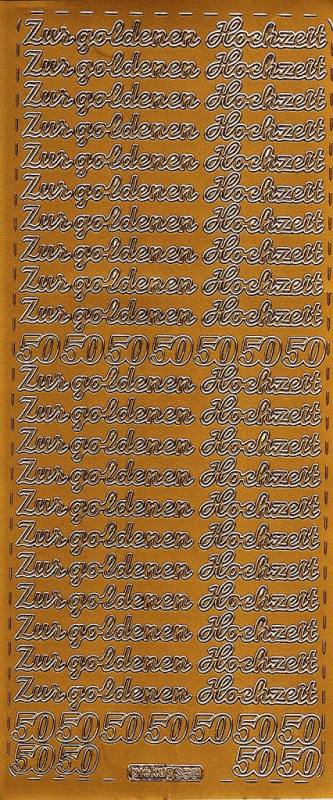 Zur goldenen Hochzeit
Zur goldenen Hochzeit
Zur goldenen Hochzeit
Zur goldenen Hochzeit
Zur goldenen Hochzeit
Zur goldenen Hochzeit
Zur goldenen Hochzeit
Zur goldenen Hochzeit
Zur goldenen Hochzeit
Zur goldenen Hochzeit
50 50 50 50 50 50 50
Zur goldenen Hochzeit
Zur goldenen Hochzeit
Zur goldenen Hochzeit
Zur goldenen Hochzeit
Zur goldenen Hochzeit
Zur goldenen Hochzeit
Zur goldenen Hochzeit
Zur goldenen Hochzeit
Zur goldenen Hochzeit
Zur goldenen Hochzeit
Zur goldenen Hochzeit
50 50 50 50 50 50 50
50 50 50 50